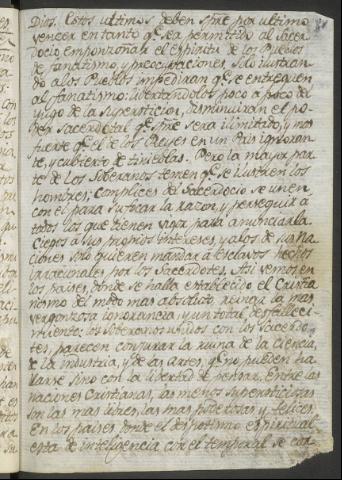 Dios. Estos ultimos deben spre por ultimo
vencer en tanto qe. sea permitido al Sacer-
docio emponzoñar el espiritu de los Pueblos
de fanatismo, y preocupaciones. Solo ilustran
do a los Pueblos impediran qe. se entreguen
al fanatismo: libertandolos poco a poco del
yugo de la Supersticion, disminuiran el po-
der Sacerdotal qe. spre sera ilimitado, y mas
fuerte qe. el de los Reyes en un Pais ignoran-
te, y cubierto de tinieblas. Pero la mayor par-
te de los Soberanos temen qe. se ilustren los
hombres; Complices del Sacerdocio se unen
con el para sufocar la razon, y perseguir a
todos los que tienen vigor para anunciarla.
Ciegos a sus propios intereses y a los de sus Na
ciones solo quieren mandar a esclavos hechos
irracionales por los Sacerdotes. Asi vemos en
los paises, donde se halla establecido el Cristia
nismo del modo mas absoluto, reinar la mas
vergonzosa ignorancia, y un total desfalleci-
miento: los Soberanos unidos con los Sacerdo-
tes, parecen conjurar la ruina de la Ciencia,
de la industria, y de las Artes, qe. no pueden ha-
llarse sino con la libertad de pensar. Entre las
naciones Cristianas, las menos Supersticiosas
son las mas libres, las mas poderosas y felices.
En los paises donde el despotismo espiritual
esta de inteligencia con el temporal se cor